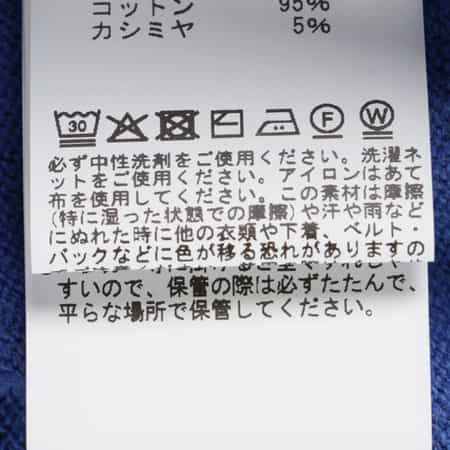 コットン 95%
カシミヤ 5%
30 F W
必ず中性洗剤をご使用ください。洗濯ネ
ットをご使用ください。アイロンはあて
布を使用してください。この素材は摩擦
(特に湿った状態での摩擦)や汗や雨など
にぬれた時に他の衣類や下着、ベルト・
バックなどに色が移る恐れがありますの
すいので、保管の際は必ずたたんで、
平らな場所で保管してください。